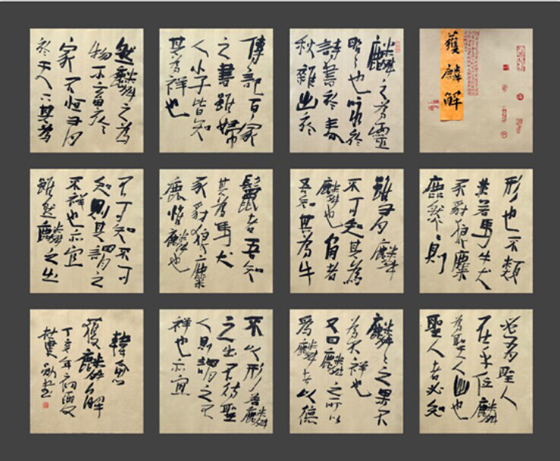 獲麟解
麟之為靈
昭昭也咏於
詩書於春
秋雜出於
傳記百家
之書雖婦
人小子皆知
其為祥也
然麟之為
物不畜於
家不恒有
於天下其為
形也不類
非若馬牛犬
豕豺狼麋
鹿然然則
雖有麟
不可知其為
麟也角者
吾知其為牛
鬣者吾知
其為馬犬
豕豺狼麋
鹿惟麟也
不可知不可
知則其謂之
不祥也亦宜
雖然麟之出
必有聖人
在乎位麟
為聖人出也
聖人者必知
麟麟之果不
為不祥也
又曰麟之所以
為麟者以德
不以形若麟
之出不待聖
人則謂之不
祥也亦宜
韓愈
獲麟解